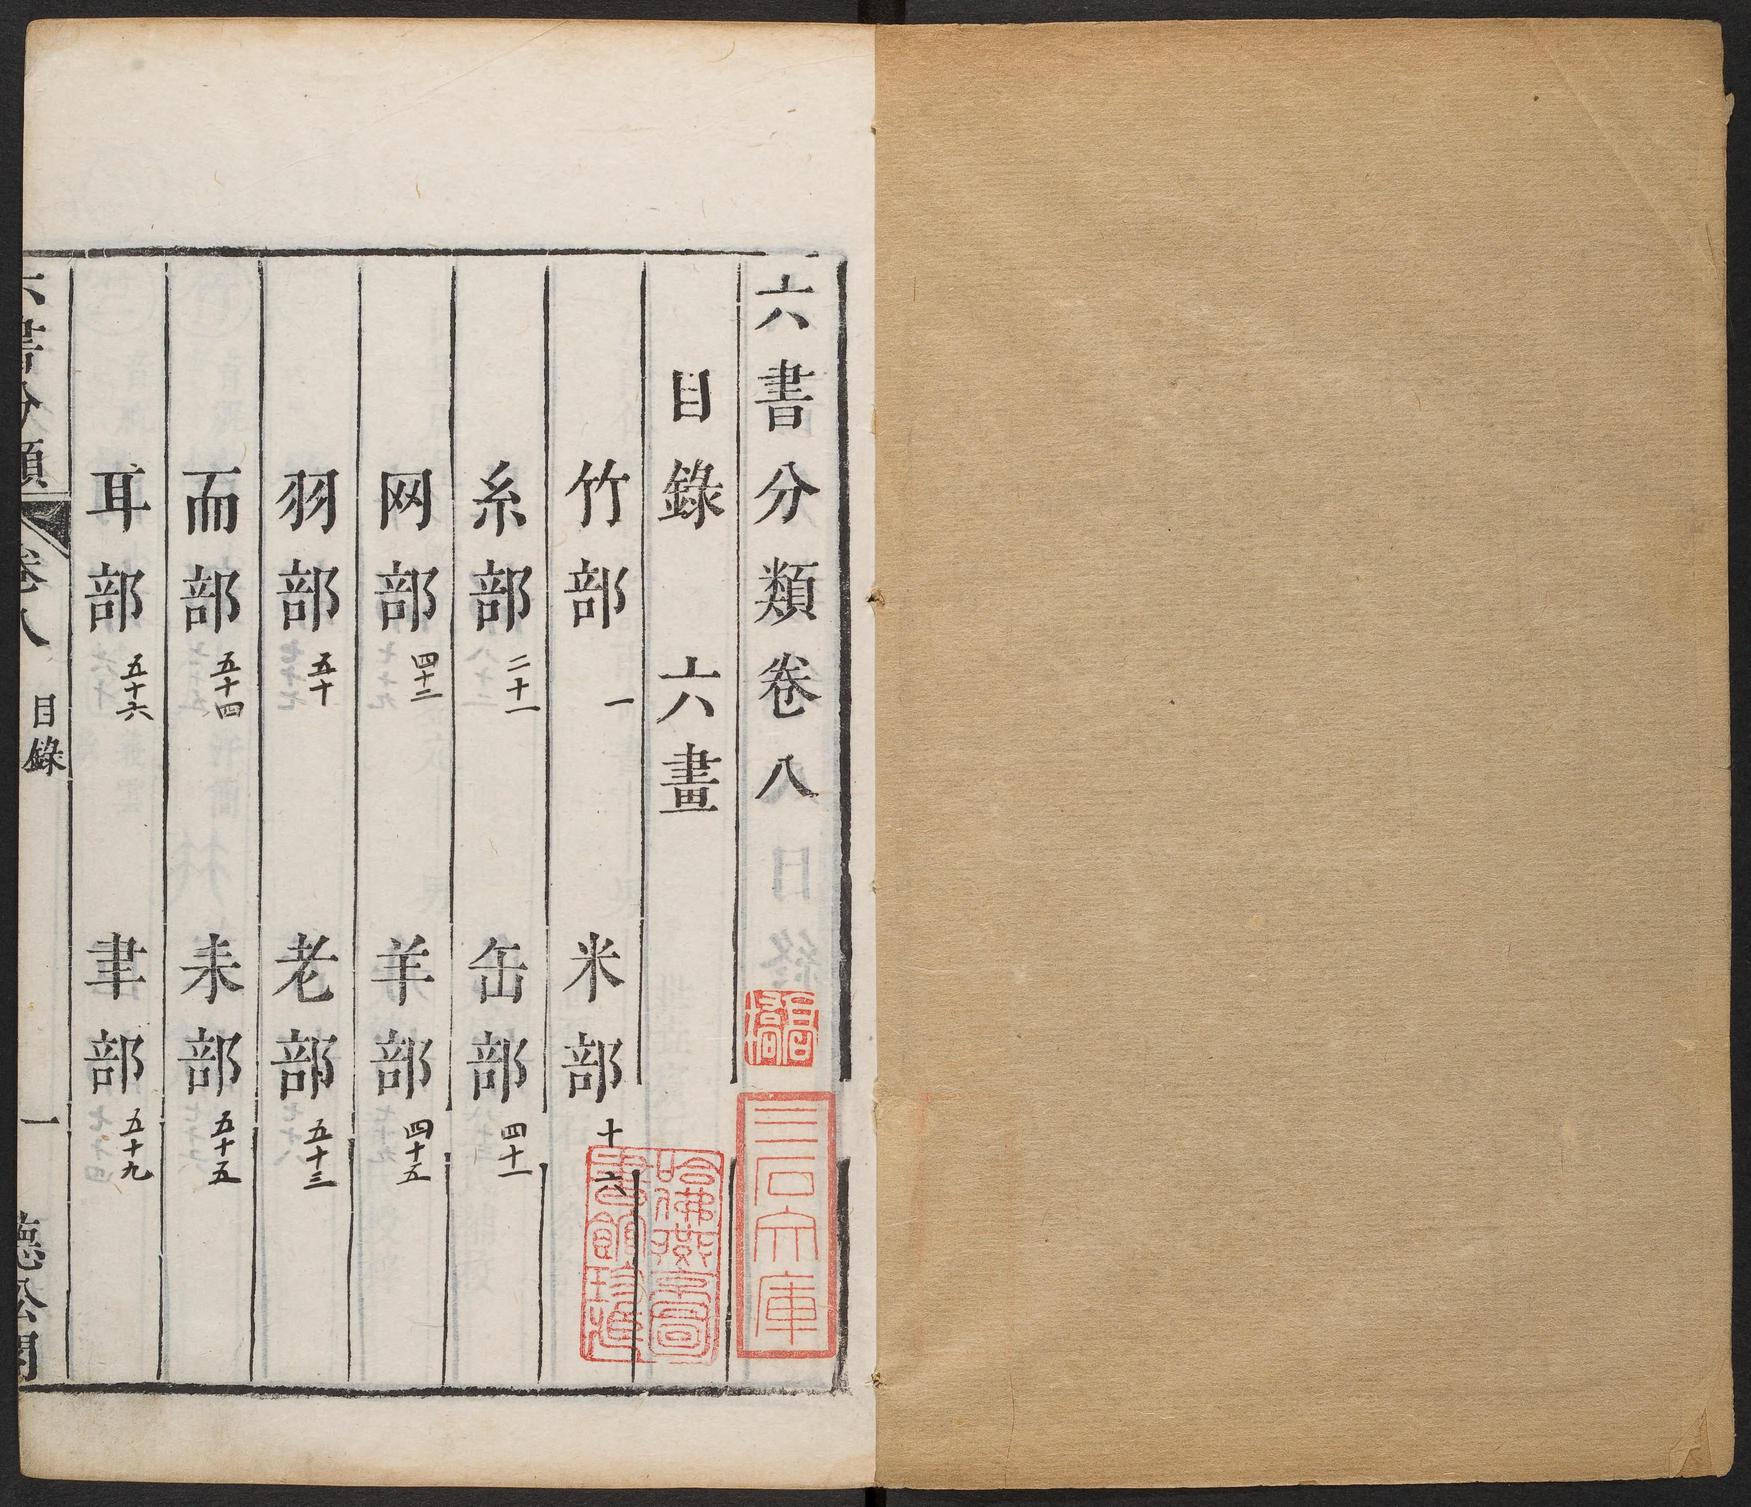 六書分類卷八
目錄 六畫
竹部 一 米部 十六
糸部 二十一 缶部 四十一
网部 四十二 羊部 四十五
羽部 五十 老部 五十三
而部 五十四 耒部 五十五
耳部 五十六 聿部 五十九
六書分類 卷八 目錄 一 聽松閣
三石文庫
哈佛燕京圖
書館珍藏